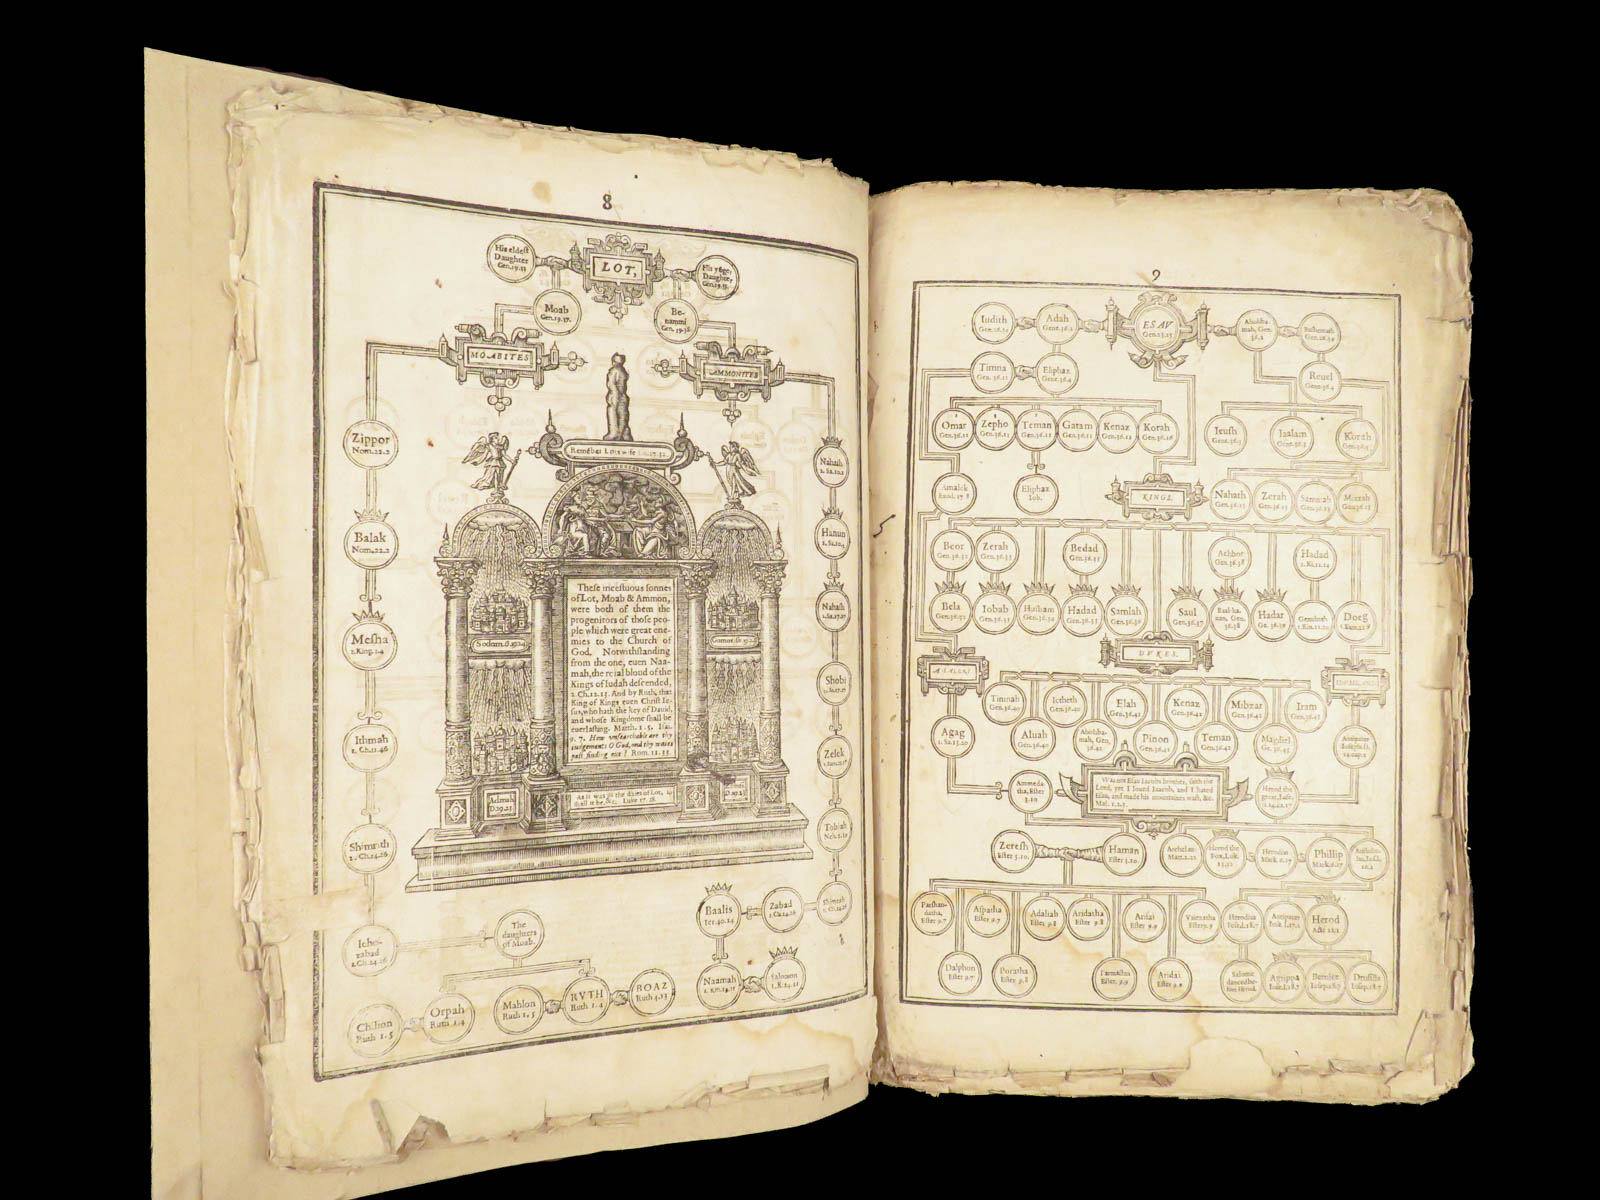 8
His eldest
Daughter
Gen.19.33
LOT,
His yōge,
Daughter,
Gen.19.35.
Moab
Gen.19.37.
Be-
nammi
Gen. 19.38
MOABITES
AMMONITES
Zippor
Nom.22.2
Balak
Nom.22.2
Mesha
2.King.3.4
Ithmah
1. Ch.11.46
Shimrith
2. Ch.24.26
Ieho-
zabad
2.Ch.24.26
The
daughters
of Moab.
Chilion
Ruth 1.5
Orpah
Ruth 1.4
Mahlon
Ruth 1.5
RVTH
Ruth 1.4
BOAZ
Ruth 4.13
Remēber Lots wife Lu.17.32.
Sodom.G.19.24
Gomor.G.19.24
These incestuous sonnes
of Lot, Moab & Ammon,
were both of them the
progenitors of those peo-
ple which were great ene-
mies to the Church of
God. Notwithstanding
from the one, euen Naa-
mah, the roial bloud of the
Kings of Iudah descended,
2. Ch.12.13. And by Ruth, that
King of Kings euen Christ Ie-
sus, who hath the key of Dauid,
and whose Kingdome shall be
euerlasting. Matth. 1.5. Isai.
9. 7. How vnsearchable are thy
iudgements O God, and thy waies
past finding out! Rom. 11.33.
Admah
D.29.23
As it was in the daies of Lot, so
shall it be, &c. Luke 17.28.
D.29.23
Nahash
1. Sa.10.2
Hanun
2. Sa.10.4
Nahash
2.Sa.17.27
Shobi
2. Sa.17.27
Zelek
Tobiah
Neh.2.10
Shimeah
2. Ch.24.26
Zabad
2.Ch.24.26
Baalis
Ier.40.14
Naamah
1. Kin.14.21
Salomon
1.K.14.21
9
Iudith
Gen.26.34
Adah
Gene.36.2
ESAV
Gen.25.25
Aholiba-
mah, Gen.
36.2
Bashemath
Gen.26.34
Timna
Gen. 36.12
Eliphaz
Gene.36.4
Reuel
Gene.36.4
Omar
Gen.36.11
Zepho
Gen.36.11
Teman
Gen.36.11
Gatam
Gen.36.11
Kenaz
Gen.36.11
Korah
Gen.36.16
Ieush
Gene.36.5
Iaalam
Gene.36.5
Korah
Gen.36.5
Amalek
Exod. 17.8
Eliphaz
Iob.
KINGS.
Nahath
Gen.36.13
Zerah
Gen.36.13
Sammah
Gen.36.13
Mizzah
Gen.36.13
Beor
Gen.36.32
Zerah
Gen.36.33
Bedad
Gen.36.35
Achbor
Gen.36.38
Hadad
1. Ki.11.14
Bela
Gen.36.32
Iobab
Gen.36.33
Husham
Gen.36.34
Hadad
Gen.36.35
Samlah
Gen.36.36
Saul
Gen.36.37
Baal-ha-
nan, Gen.
36.38
Hadar
Ge. 36.39
Genubath
1. Kin.11.20
Doeg
DVKES.
Timnah
Gen.36.40
Ietheth
Gen.36.40
Elah
Gen.36.41
Kenaz
Gen.36.42
Mibzar
Gen.36.42
Iram
Gen.36.43
Agag
1. Sa.15.20
Aluah
Gen.36.40
Aholiba-
mah, Gen.
36.41
Pinon
Gen.36.41
Teman
Gen.36.42
Magdiel
Ge. 36.43
Antipater
Ammeda-
tha, Ester
3.10
Was not Esau Iacobs brother, saith the
Lord, yet I loued Iaacob, and I hated
Esau, and made his mountaines wast, &c.
Mal. 1.2.3.
Herod the
great, Iose.
Zeresh
Ester 5.10.
Haman
Ester 3.10.
Archelaus
Matt.2.22
Herod the
Fox, Luk.
13.32
Herodias
Mark 6.17
Phillip
Mark.6.17
Parshan-
datha,
Ester 9.7
Aspatha
Ester 9.7
Adaliah
Ester 9.8
Aridatha
Ester 9.8
Arisai
Ester 9.9
Vaiezatha
Ester 9.9
Herodias
Iose.l.18.7
Antipater
Iose.l.17.1
Herod
Acts 12.1
Dalphon
Ester 9.7
Poratha
Ester 9.8
Parmashta
Ester 9.9
Aridai
Ester 9.9
Salome
danced be-
fore Herod.
Agrippa
Iose.l.18.7
Bernice
Iosep.18.7
Drusilla
Iosep.18.7